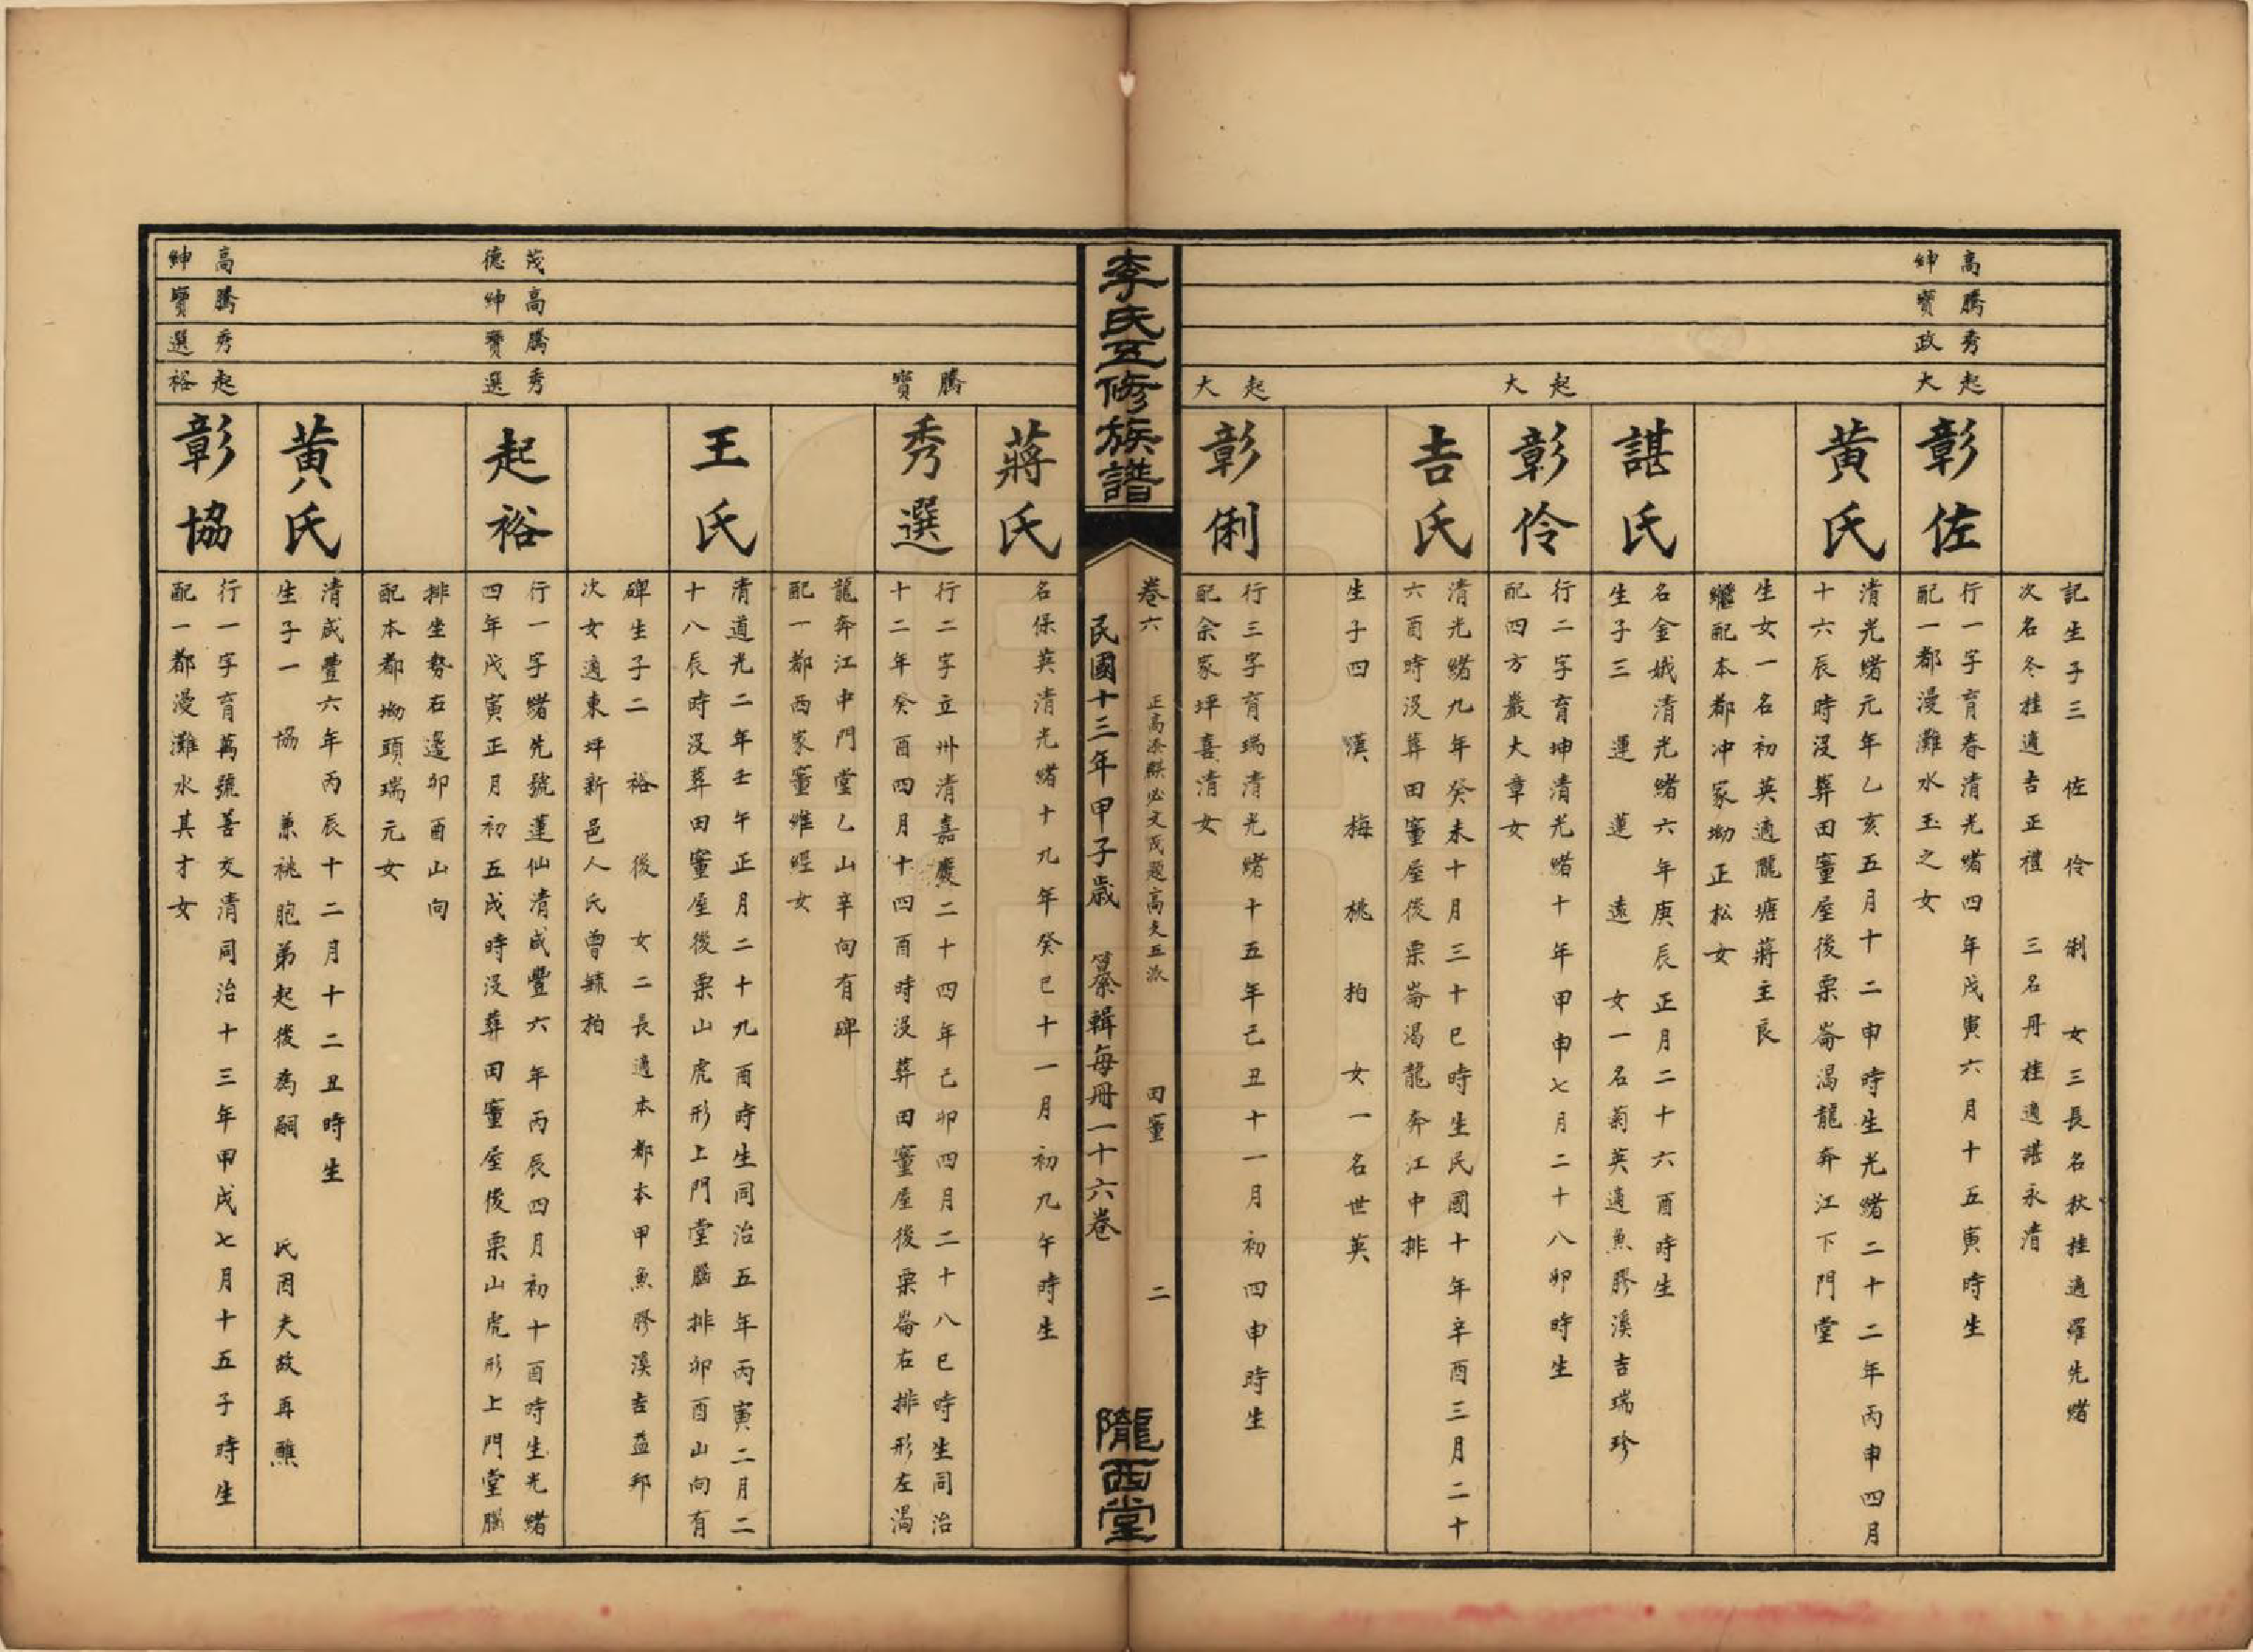 記生子三　佐　伶　俐　女三長名秋桂適羅先緒
次名冬桂適吉正禮　三名丹桂適諶永清
高紳
騰寶
秀政
起大
彰佐
行一字育春清光緒四年戊寅六月十五寅時生
配一都漫灘水玉之女
黃氏
清光緒元年乙亥五月十二申時生光緒二十二年丙申四月
十六辰時沒葬田蕫屋後栗崙渴龍奔江下門堂
生女一名初英適隴塘蔣主良
繼配本都冲家坳正松女
諶氏
名金娥清光緒六年庚辰正月二十六酉時生
生子三　運　蓮　遠　女一名菊英適魚膠溪吉瑞珍
起大
彰伶
行二字育坤清光緒十年甲申七月二十八卯時生
配四方巖大章女
吉氏
清光緒九年癸未十月三十巳時生民國十年辛酉三月二十
六酉時沒葬田蕫屋後栗崙渴龍奔江中排
生子四　漢　梅　桃　柏　女一名世英
起大
彰俐
行三字育瑞清光緒十五年己丑十一月初四申時生
配余家坪喜清女
李氏五修族譜
卷六　正高添騏必文茂題高夫五派　田蕫　二
民國十三年甲子歲　纂輯每冊一十六卷
隴西堂
蔣氏
名保英清光緒十九年癸巳十一月初九午時生
騰寶
秀選
行二字立州清嘉慶二十四年己卯四月二十八巳時生同治
十二年癸酉四月十四酉時沒葬田蕫屋後栗崙右排形左渴
龍奔江中門堂乙山辛向有碑
配一都西家蕫維經女
王氏
清道光二年壬午正月二十九酉時生同治五年丙寅二月二
十八辰時沒葬田蕫屋後栗山虎形上門堂腦排卯酉山向有
碑生子二　裕　後　女二長適本都本甲魚膠溪吉益邦
次女適東坪新邑人氏曾棘柏
茂德
高紳
騰寶
秀選
起裕
行一字緒先號蓮仙清咸豐六年丙辰四月初十酉時生光緒
四年戊寅正月初五戌時沒葬田蕫屋後栗山虎形上門堂腦
排坐勢右邊卯酉山向
配本都坳頭瑞元女
黃氏
清咸豐六年丙辰十二月十二丑時生
生子一　協　兼祧胞弟起後為嗣　氏因夫故再醮
高紳
騰寶
秀選
起裕
彰協
行一字育萬號善交清同治十三年甲戌七月十五子時生
配一都漫灘水其才女